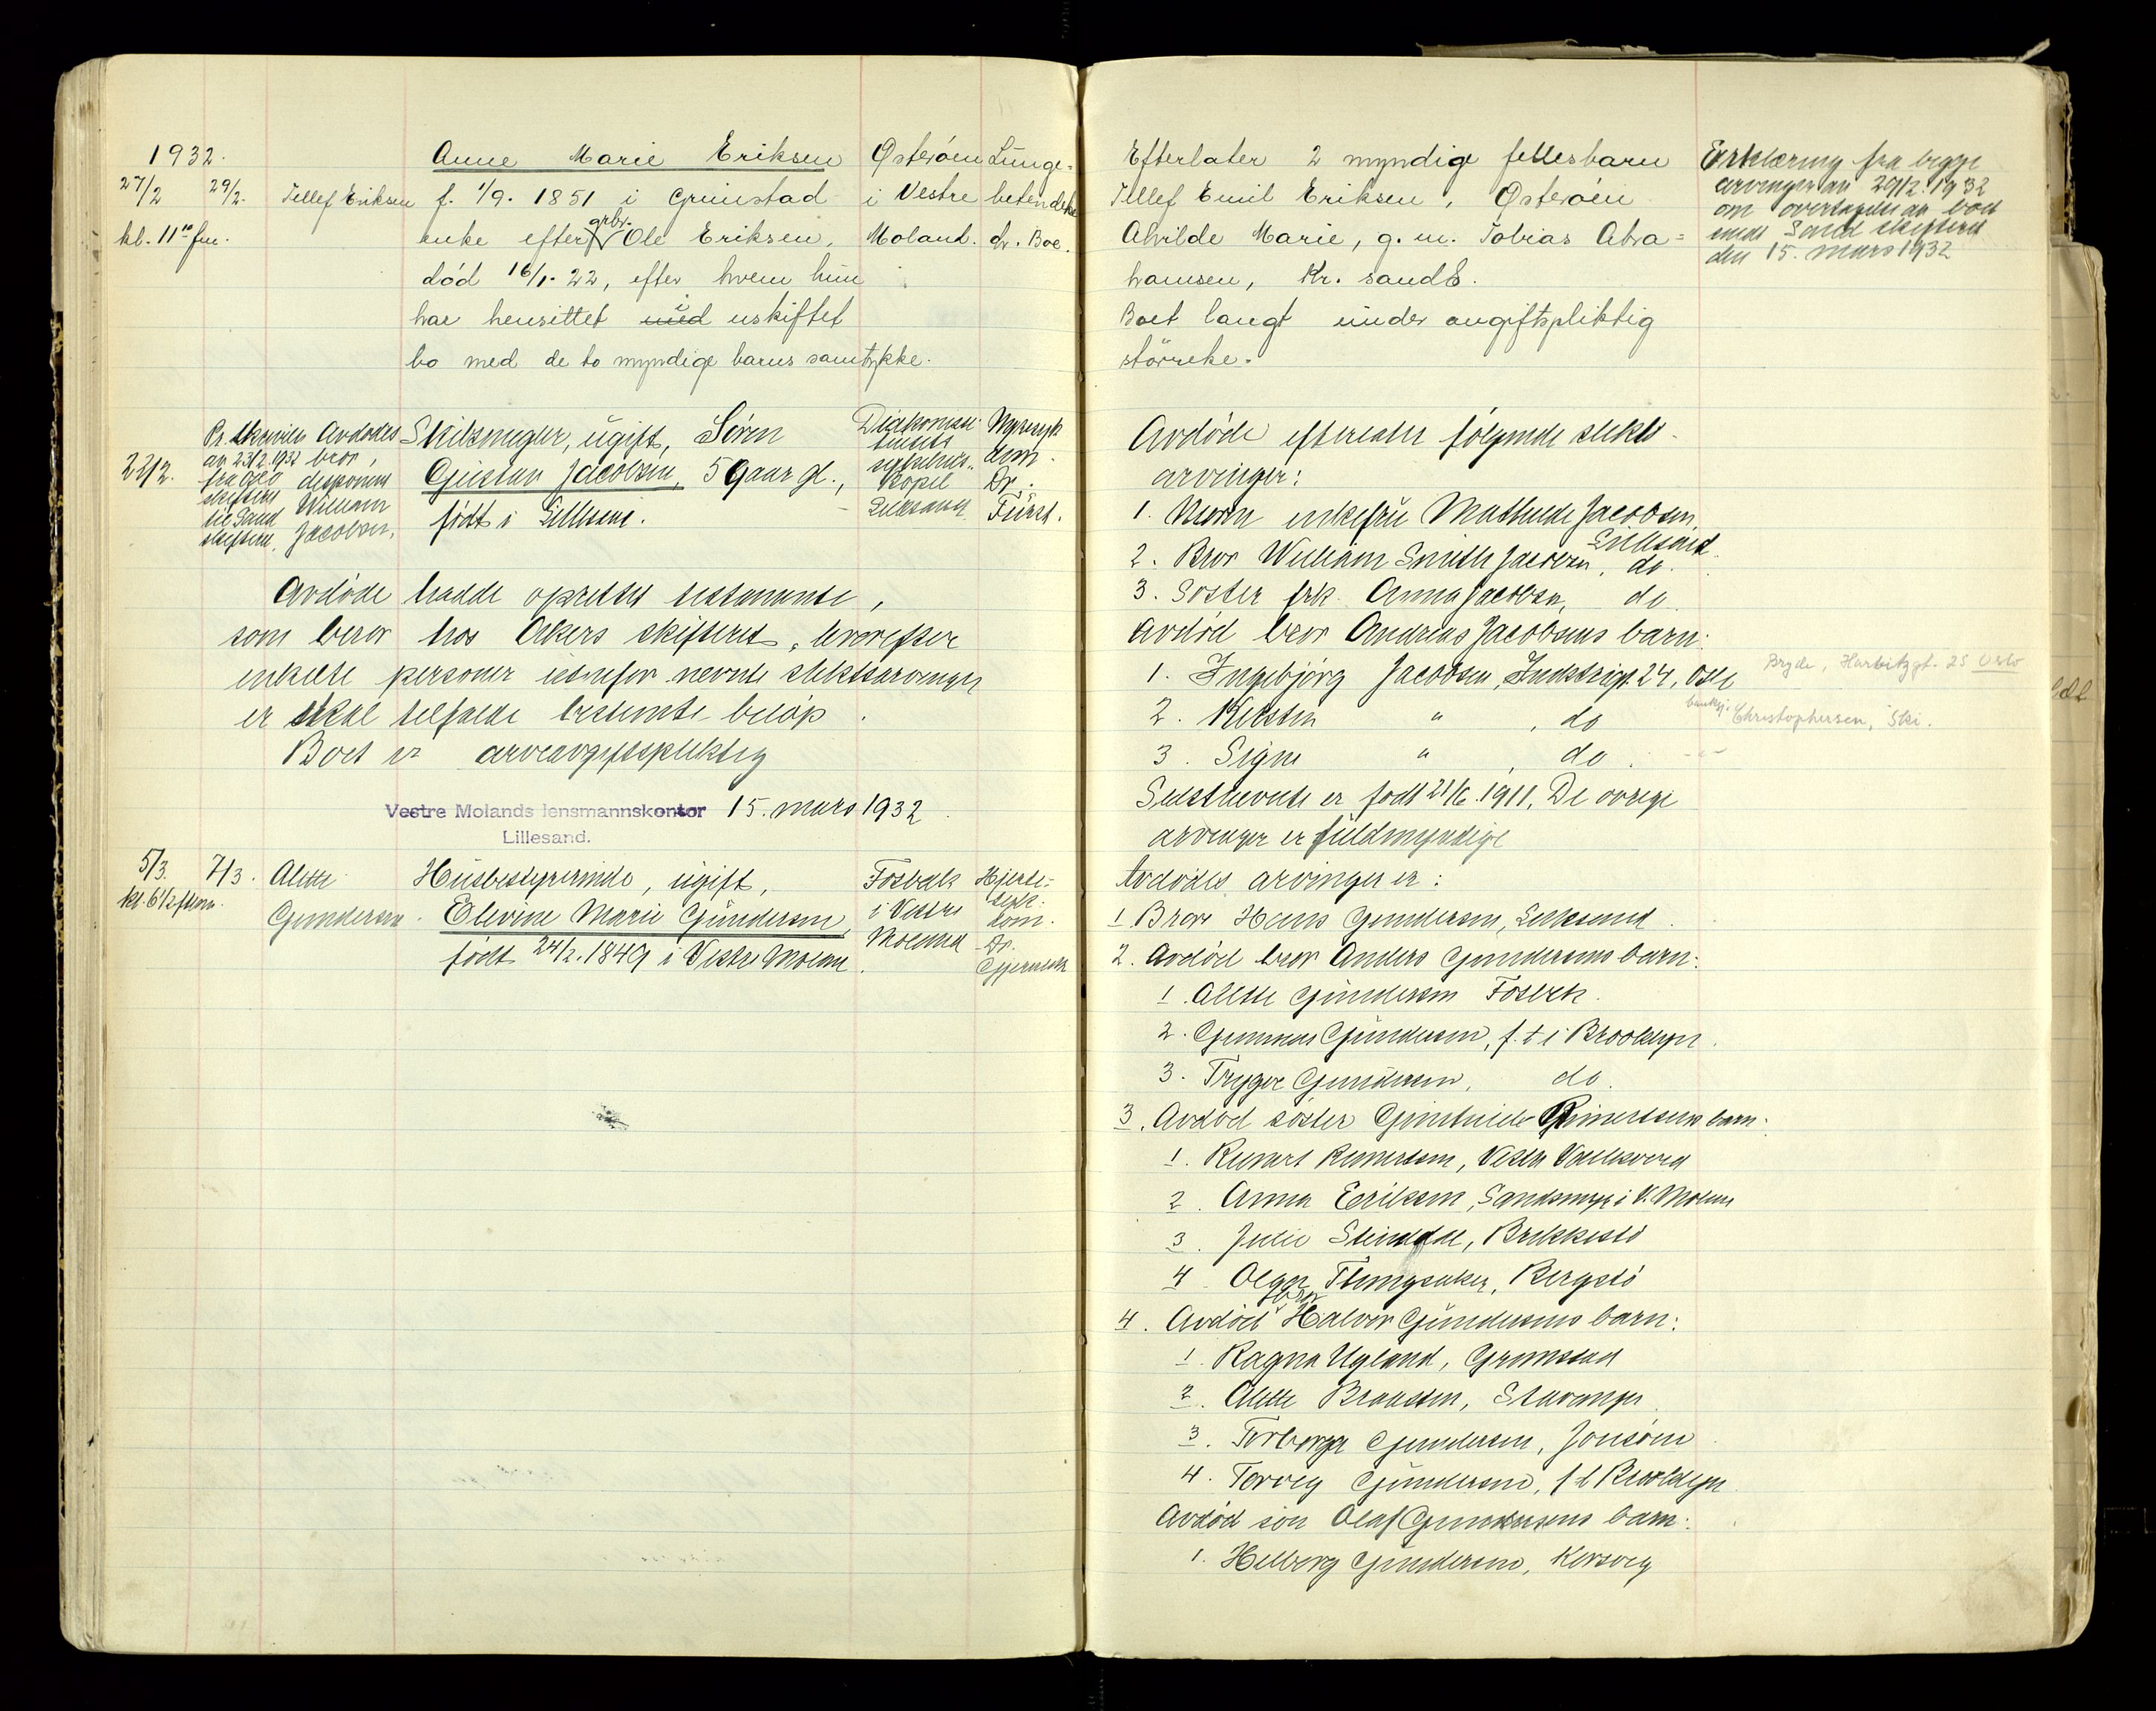 1932.
27/2 29/2. Tellef Eriksen
kl. 11 10 fm.
Anne Marie Eriksen
f. 1/9. 1851 i Grimstad
enke efter grbr. Ole Eriksen,
død 16/1. 22, efter hvem hun
har hensittet i uskiftet
bo med de to myndige barns samtykke.
Østerøen
i Vestre
Moland.
Lunge-
betendelse
dr. Boe.
22/2.
Pr. skrivelse
av 23/2. 1932
fra Oslo
skifterett
til Sand
skifterett.
Avdødes
bror,
disponent
William
Jacobsen.
Skibsmegler, ugift, Søren
Gustav Jacobsen, 59 aar gl.,
født i Lillesand.
sykehus.
Bopel
Lillesand
Dr.
Fürst.
Avdøde hadde oprettet testamente,
som beror hos Akers skifterett, hvorefter
enkelte personer istedenfor nevnte slektsarvinger
er skal tilfalde bestemte beløp.
Boet er arveavgiftspliktig
Vestre Molands lensmannskontor 15. mars 1932.
Lillesand.
5/3. 7/3. Alette
kl. 6 1/2 ftm.
Gundersen
Husbestyrerinde, ugift,
Elevine Marie Gundersen,
født 24/2. 1849 i Vestre Moland
Fosbæk
i Vestre
Moland
Hjerte-
syk-
dom.
Dr.
Efterlater 2 myndige fellesbarn
Tellef Emil Eriksen, Østerøen
Alvilde Marie, g. m. Tobias Abra=
hamsen, Kr. sand S.
Boet langt under avgiftspliktig
størrelse.
Erklæring fra begge
arvinger av 29/2. 1932
om overtagelse av boet
sendt Sand skifterett
den 15. mars 1932
Avdøde efterlater følgende slekts-
arvinger:
1. Moren enkefru Mathilde Jacobsen,
Lillesand.
2. Bror William Smith Jacobsen, do.
3. Søster frk. Anna Jacobsen, do.
Avdød bror Andreas Jacobsens barn:
1. Ingebjørg Jacobsen, Industrigt. 24, Oslo
Bryde, Harbitzgt. 25 Oslo
2. Kirsten " , do
Christophersen, Ski.
3. Signe " , do.
Sistnevnte er født 21/6. 1911. De øvrige
arvinger er fuldmyndige
Avdødes arvinger er:
1 Bror Hans Gundersen, Lillesand.
2. Avdød bror Anders Gundersens barn:
1. Alette Gundersen Fosbæk.
2. Gunnar Gundersen, f. t. i Brooklyn.
3. Trygve Gundersen, do.
3. Avdød søster Gunhilde Reinertsens barn:
1. Reinert Reinertsen, Vestre Vallesverd
2. Anna Eriksen, Sandsmyr i V. Moland
3. Julie Steindal, Brekkestø
4 Olga Tengsaker, Bergstø
4. Avdød bror Halvor Gundersens barn:
1. Ragna Ugland, Grimstad
2. Alette Braadten, Stavanger
3. Torborg Gundersen, Jonsøen
4. Torveig Gundersen, f. t. Brooklyn
Avdød søn Olaf Gundersens barn:
1. Helborg Gundersen,